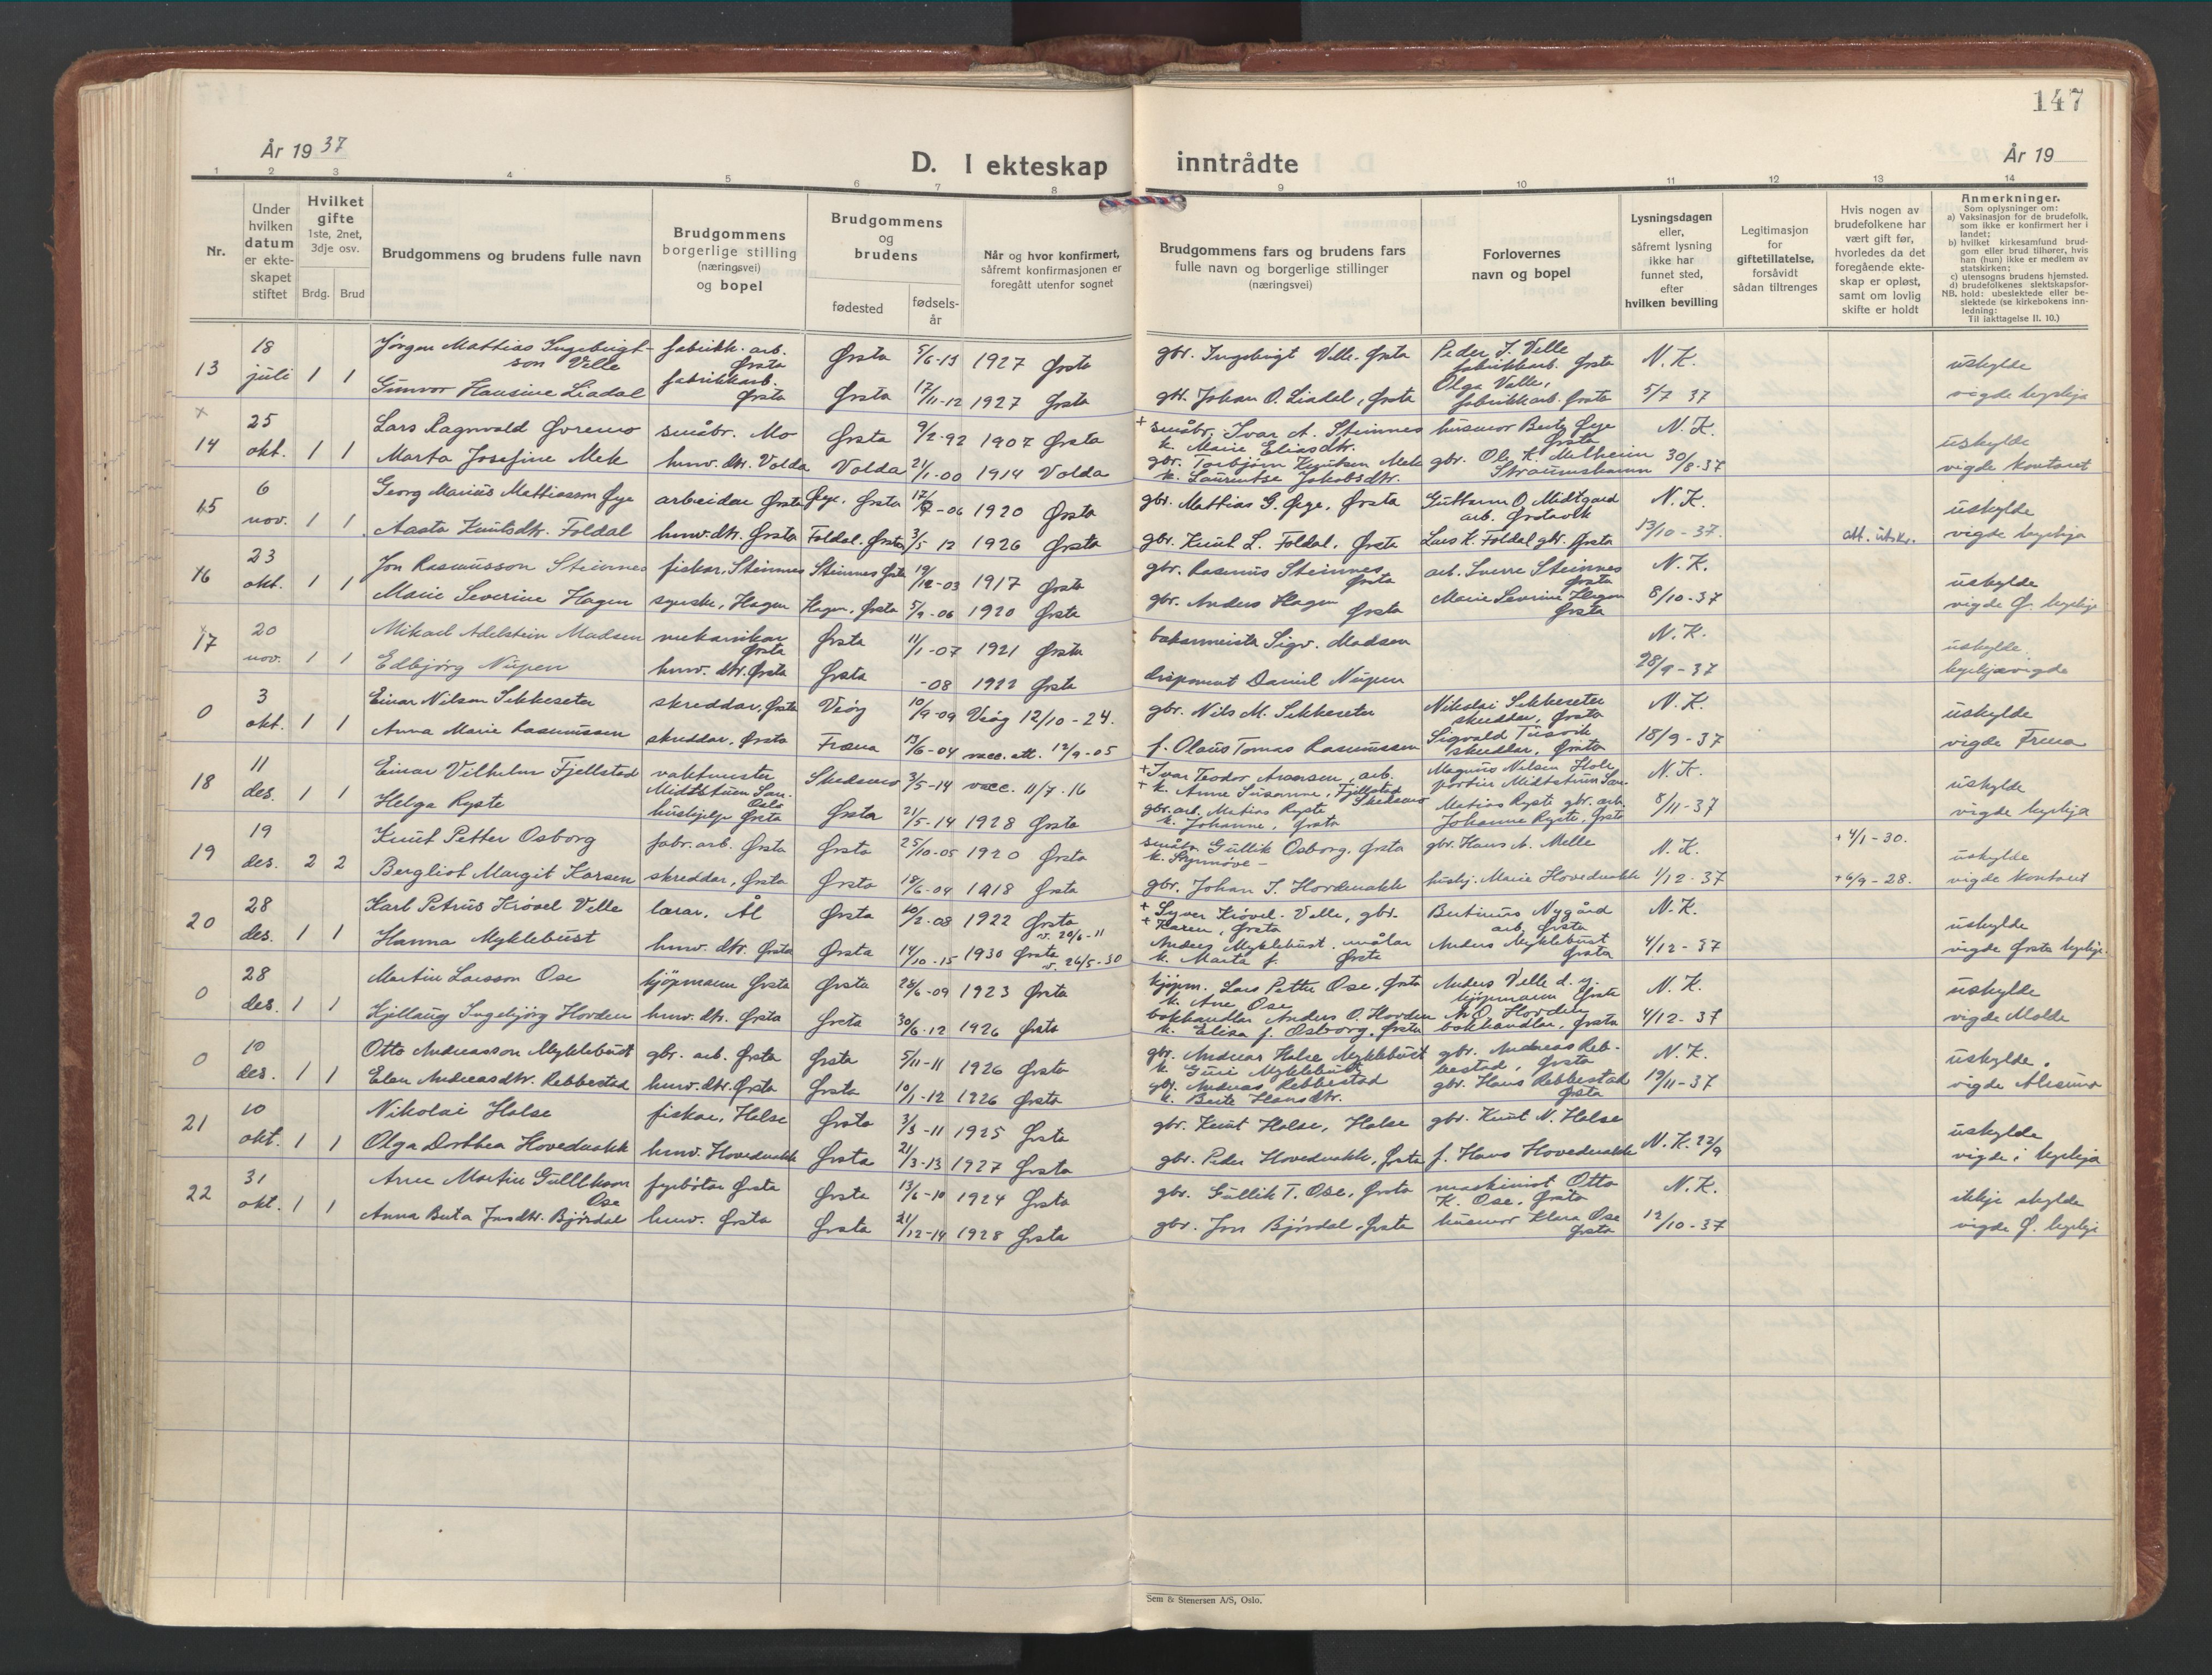 147
År 19 37
D. I ekteskap inntrådte
År 19
1 2 3 4 5 6 7 8 9 10 11 12 13 14
Nr.
Under hvilken datum er ekte-skapet stiftet
Hvilket gifte 1ste, 2net, 3dje osv.
Brdg. Brud
Brudgommens og brudens fulle navn
Brudgommens borgerlige stilling (næringsvei) og bopel
Brudgommens og brudens
fødested
fødsels-år
Når og hvor konfirmert, såfremt konfirmasjonen er foregått utenfor sognet
Brudgommens fars og brudens fars fulle navn og borgerlige stillinger (næringsvei)
Forlovernes navn og bopel
Lysningsdagen eller, såfremt lysning ikke har funnet sted, efter hvilken bevilling
Legitimasjon for giftetillatelse, forsåvidt sådan tiltrenges
Hvis nogen av brudefolkene har vært gift før, hvorledes da det foregående ekte-skap er opløst, samt om lovlig skifte er holdt
Anmerkninger.
Som oplysninger om:
a) Vaksinasjon for de brudefolk, som ikke er konfirmert her i landet;
b) hvilket kirkesamfund brud-gom eller brud tilhører, hvis han (hun) ikke er medlem av statskirken;
c) utensogns brudens hjemsted.
d) brudefolkenes slektskapsfor-hold: ubeslektede eller be-slektede (se kirkebokens inn-ledning:
NB.
Til iakttagelse II. 10.)
13 18 juli 1 1 Jørgen Mattias Ingebrigt-son Velle fabrikk. arb. Ørsta Ørsta 5/6-13 1927 Ørsta gbr. Ingebrigt Velle. Ørsta Peder I. Velle fabrikkarb. Ørsta N. K. uskylde
Gunvor Hansine Liadal fabrikkarb. Ørsta Ørsta 17/11-12 1927 Ørsta gbr. Johan O. Liadal, Ørsta Olga Velle, fabrikkarb. Ørsta 5/7 37 vigde kyrkja
x
14 25 okt. 1 1 Lars Ragnvald Øvremo småbr. Mo Ørsta 9/2-92 1907 Ørsta + småbr. Ivar A. Steinnes k. Marie Eliasdtr. husmor Berta Øye Ørsta N. K. uskylde
Marta Josefine Mek husv. dtr. Volda Volda 21/1-00 1914 Volda gbr. Torbjørn Knutsen Mek k. Laurentse Jakobsdtr. gbr. Ole K. Melheim Straumshamn 30/8-37 vigde kontoret
15 6 nov. 1 1 Georg Marius Mattiasson Øye arbeidar Ørsta Øye, Ørsta -06 1920 Ørsta gbr. Mattias G. Øye, Ørsta Guttorm O. Midtgard arb. Ørstavik N. K. uskylde
Aasta Knutsdtr. Foldal husv. dtr. Ørsta Foldal. Ørsta 3/5 12 1926 Ørsta gbr. Knut L. Foldal, Ørsta Lars K. Foldal gbr. Ørsta 13/10-37. att. utskr. vigde kyrkja
16 23 okt. 1 1 Jon Rasmusson Steinnes fiskar, Steinnes Steinnes Ørsta 19/12-03 1917 Ørsta gbr. Rasmus Steinnes Ørsta arb. Sverre Steinnes Ørsta N. K. uskylde
Marie Severine Hagen syerske, Hagen Hagen, Ørsta 5/9-06 1920 Ørsta gbr. Anders Hagen Ørsta Marie Sevrine Hagen Ørsta 8/10-37 vigde Ø. kyrkje
x
17 20 nov. 1 1 Mikael Adelstein Madsen mekanikar Ørsta Ørsta 11/1-07 1921 Ørsta bakarmeister Sigv. Madsen N. K. uskylde
Edbjørg Nupen husv. dtr. Ørsta Ørsta -08 1922 Ørsta disponent Daniel Nupen 28/9-37 kyrkjevigde
0 3 okt. 1 1 Einar Nilsen Sekkeseter skreddar, Ørsta Veøy 10/9-09 Veøy 12/10-24. gbr. Nils M. Sekkeseter Nikolai Sekkeseter skreddar, Ørsta N. K. uskylde
Anna Marie Rasmussen skreddar, Ørsta Fræna 13/6-04 vacc. att. 12/9-05 f. Olaus Tomas Rasmussen Sigvald Tusvik skreddar, Ørsta 18/9-37 vigde Fræna
18 11 des. 1 1 Einar Vilhelm Fjellstad vaktmester Midtstuen San. Oslo Skedsmo 3/5-14 vacc. 11/7-16 + Ivar Teodor Aronsen, arb. + k. Anne Susanne, Fjellstad Skedsmo Magnus Nilsen Hole portier Midtstuen San. N. K. uskylde
Helga Ryste hushjelp Ørsta Ørsta 21/5-14 1928 Ørsta gbr. arb. Matias Ryste k. Johanne, Ørsta Matias Ryste gbr. arb. Johanne Ryste, Ørsta 8/11-37 vigde kyrkja
19 19 des. 2 2 Knut Petter Osborg fabr. arb. Ørsta Ørsta 25/10-05 1920 Ørsta småbr. Gullik Osborg, Ørsta k. Synnøve - gbr. Hans A. Melle N. K. + 4/1-30. uskylde
Bergliot Margit Karsen skreddar, Ørsta Ørsta 18/6-04 1918 Ørsta gbr. Johan I. Hovdenakk hushj. Marie Hovdenakk 1/12-37 + 6/9-28. vigde kontoret
20 28 des. 1 1 Karl Petrus Krøvel Velle lærar, Ål Ørsta 10/2-08 1922 Ørsta v. 20/6-11 + Syver Krøvel-Velle, gbr. + Karen, Ørsta Bertinus Nygård arb, Ørsta N. K. uskylde
Hanna Myklebust husv. dtr. Ørsta Ørsta 14/10-15 1930 Ørsta v. 26/5-30 Anders Myklebust, målar k. Marta f. Ørsta Anders Myklebust Ørsta 4/12-37 vigde Ørsta kyrkje.
0 28 des. 1 1 Martin Larsson Ose kjøpmann Ørsta Ørsta 28/6-09 1923 Ørsta kjøpm. Lars Petter Ose, Ørsta k. Ane Ose Anders Velle d. y. kjøpmann Ørsta N. K. uskylde
Kjellaug Ingebjørg Hovden husv. dtr. Ørsta Ørsta 30/6-12 1926 Ørsta bokhandlar Anders O. Hovden k. Elisa f. Osborg, Ørsta A. O. Hovden bokhandlar, Ørsta 4/12-37 vigde Molde
0 10 des. 1 1 Otto Andreasson Myklebust gbr. arb. Ørsta Ørsta 5/11-11 1926 Ørsta gbr. Andreas Halse Myklebust k. Guri Myklebust gbr. Andreas Reb-bestad, Ørsta N. K. uskylde.
Elen Andreasdtr. Rebbestad husv. dtr. Ørsta Ørsta 10/1-12 1926 Ørsta gbr. Andreas Rebbestad k. Berte Hansdtr. gbr. Hans Rebbestad Ørsta 19/11-37 vigde Ålesund
21 10 okt. 1 1 Nikolai Halse fiskar, Halse Ørsta 3/3-11 1925 Ørsta gbr. Knut Halse, Halse gbr. Knut N. Halse uskylde
Olga Dorthea Hovdenakk husv. Hovdenakk Ørsta 21/3-13 1927 Ørsta gbr. Peder Hovdenakk, Ørsta f. Hans Hovdenakk N. K. 22/9 vigde i kyrkja
22 31 okt. 1 1 Arne Martin Gullikson Ose fyrbøtar Ørsta Ørsta 13/6-10 1924 Ørsta gbr. Gullik T. Ose, Ørsta maskinist Otto K. Ose, Ørsta N. K. ikkje skylde
Anna Berta Jonsdtr. Bjørdal husv. Ørsta Ørsta 21/12-14 1928 Ørsta gbr. Jon Bjørdal, Ørsta husmor Klara Ose Ørsta 12/10-37 vigde Ø. kyrkje
Sem & Stenersen A/S, Oslo.